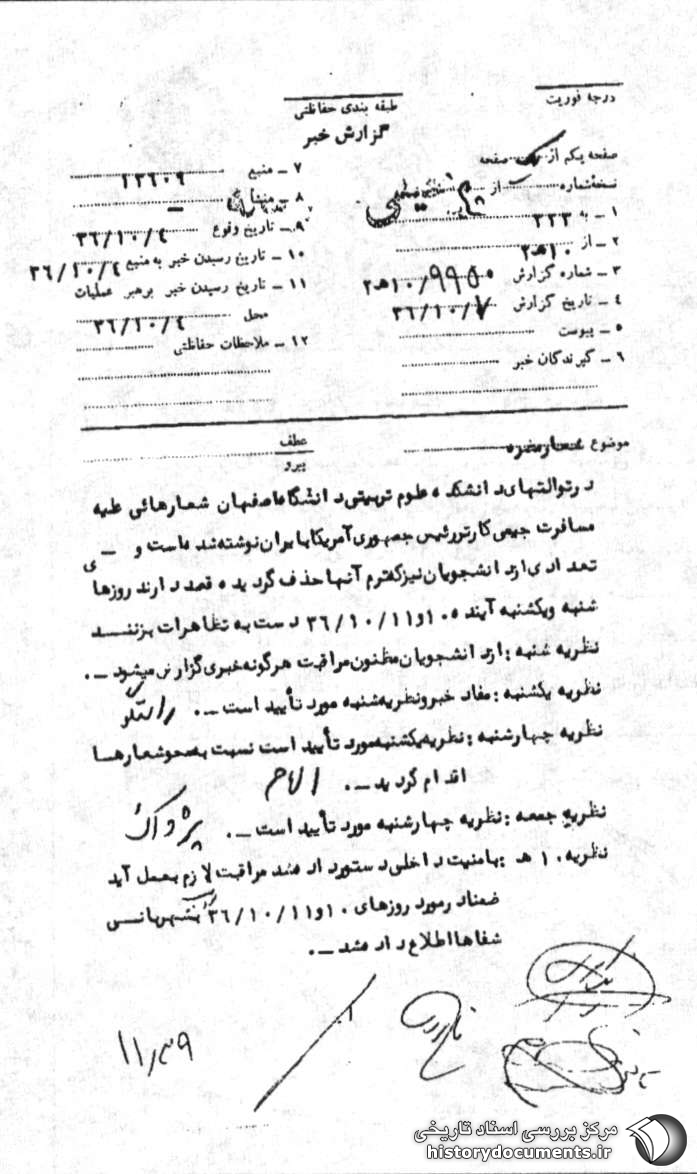 درجه فوریت
طبقه بندی حفاظتی
گزارش خبر
صفحه یکم از یک صفحه
نسخه شماره از
۱ ـ به ۳۳۳
۲ ـ از ۱۰هـ۲
۳ ـ شماره گزارش ۹۹۵۰/۱۰هـ۲
۴ ـ تاریخ گزارش ۳۶/۱۰/۷
۵ ـ پیوست
۶ ـ گیرندگان خبر
۷ ـ منبع ۱۲۶۰۹
۸ ـ منشأ
۹ـ تاریخ وقوع ۳۶/۱۰/۴
۱۰ ـ تاریخ رسیدن خبر به منبع ۳۶/۱۰/۴
۱۱ ـ تاریخ رسیدن خبر برهبر عملیات
محل ۳۶/۱۰/۴
۱۲ ـ ملاحظات حفاظتی
موضوع شعار مضره
عطف
پیرو
در توالتهای دانشکده علوم تربیتی دانشگاه اصفهان شعارهائی علیه
مسافرت جیمی کارتر رئیس جمهوری آمریکا بایران نوشته شده است و ـ
تعدادی از دانشجویان نیز که ترم آنها حذف گردیده قصد دارند روزهای
شنبه ویکشنبه آینده ۱۰ و ۳۶/۱۰/۱۱ دست به تظاهرات بزننــد
نظریه شنبه : از دانشجویان مظنون مراقبت هرگونه خبری گزارش میشود ـ.
نظریه یکشنبه : مفاد خبر ونظریه شنبه مورد تأیید است ـ.
نظریه چهارشنبه : نظریه یکشنبه مورد تأیید است نسبت به محو شعارهــا
اقدام گردید ـ.
نظریه جمعه : نظریه چهارشنبه مورد تأیید است ـ. پژواک
نظریه ۱۰ هـ : بامنیت داخلی دستور داده شد مراقبت لازم بعمل آید
ضمناً در مورد روزهای ۱۰ و ۳۶/۱۰/۱۱ بشهربانـــی
شفاهاً اطلاع داده شد ـ.
مرکز بررسی اسناد تاریخی
historydocuments.ir